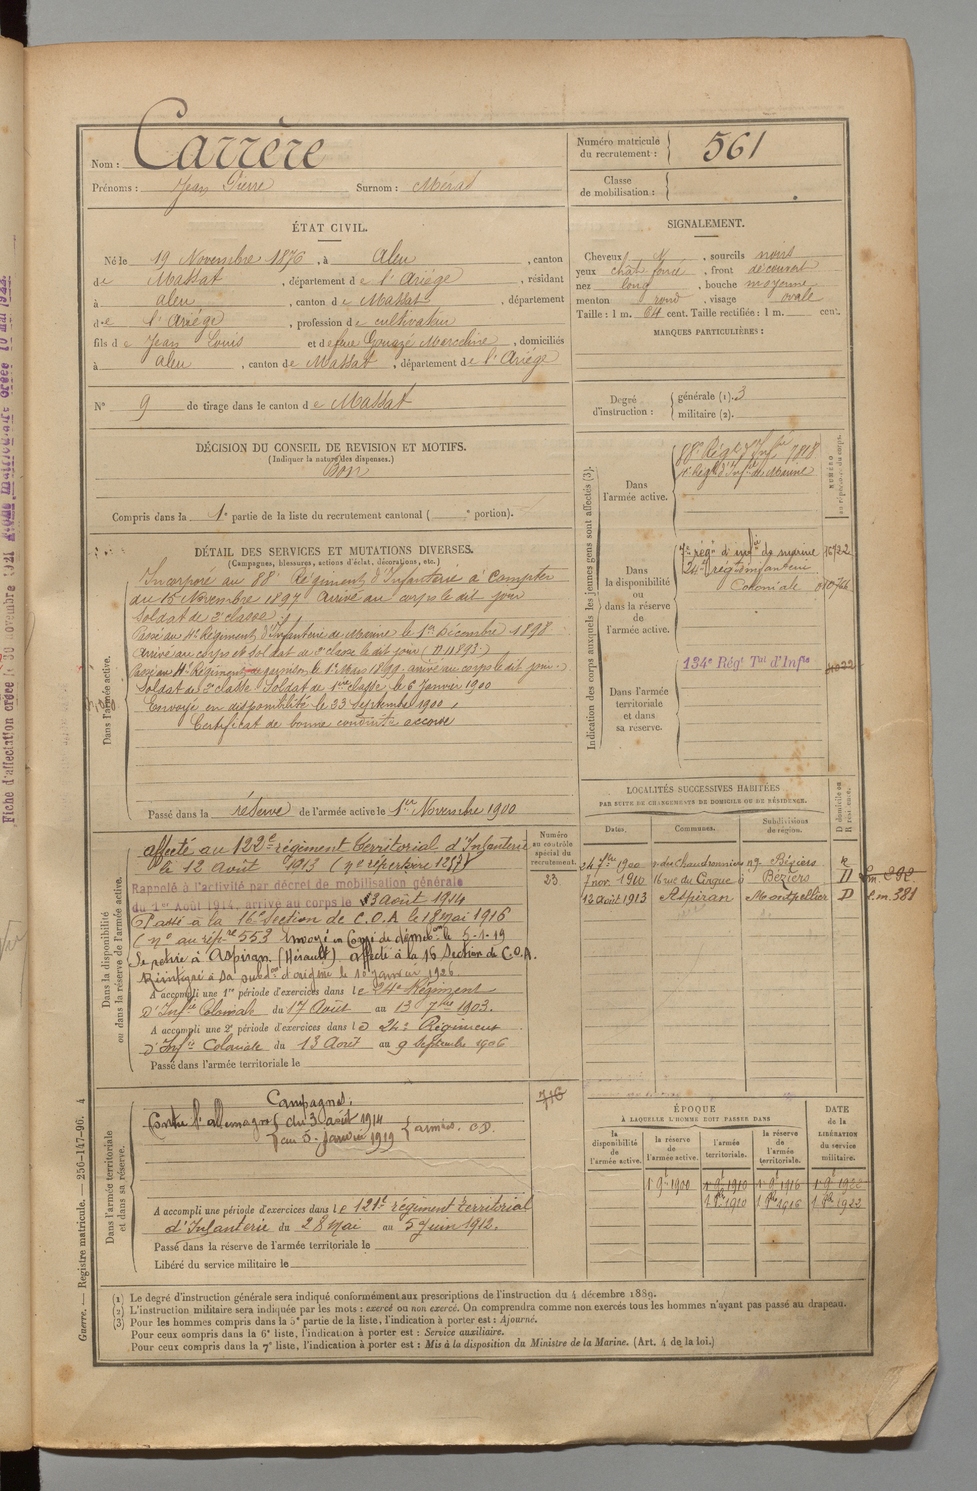 Nom : Carrère
Prénoms : Jean Pierre Surnom : Mérad
Numéro matricule du recrutement : 561
Classe de mobilisation :
ÉTAT CIVIL.
Né le 19 Novembre 1876, à Aleu, canton
de Massat, département de l'Ariège, résidant
à Aleu, canton de Massat, département
de l'Ariège, profession de cultivateur
fils de Jean Louis et de feue Gouazé, domiciliés
à Aleu, canton de Massat, département de l'Ariège
N° 9 de tirage dans le canton de Massat
SIGNALEMENT.
Cheveux N, sourcils noirs
yeux chat. foncé, front découvert
nez long, bouche moyenne
menton rond, visage ovale
Taille : 1 m. 64 cent. Taille rectifiée : 1 m. cent.
MARQUES PARTICULIÈRES :
Degré d'instruction : générale (1). 3
militaire (2).
DÉCISION DU CONSEIL DE REVISION ET MOTIFS.
(Indiquer la nature des dispenses.)
Bon
Compris dans la 1e partie de la liste du recrutement cantonal ( e portion).
DÉTAIL DES SERVICES ET MUTATIONS DIVERSES.
(Campagnes, blessures, actions d'éclat, décorations, etc.)
Dans l'armée active.
Incorporé au 88e Régiment d'Infanterie à compter
du 15 Novembre 1897 Arrivé au corps le dit jour
Soldat de 2e classe.
Passé au 4e Régiment d'Infanterie de Marine le 1er Décembre 1898
Arrivé au corps et soldat de 2e classe le dit jour
Passé au Régiment le 1er Mars 1899. arrivé au corps le dit jour.
Soldat de 2e classe Soldat de 1ère classe le 6 Janvier 1900
Envoyé en disponibilité le 23 Septembre 1900.
Certificat de bonne conduite accordé
Passé dans la réserve de l'armée active le 1er Novembre 1900
Indication des corps auxquels les jeunes gens sont affectés (3).
Dans l'armée active.
88e Régt d'Infie 7818
Dans la disponibilité ou dans la réserve de l'armée active.
7e régt d'infie de marine
24e régt infanterie
Coloniale
134e Régt Tal d'Infie
Dans l'armée territoriale et dans sa réserve.
LOCALITÉS SUCCESSIVES HABITÉES
PAR SUITE DE CHANGEMENTS DE DOMICILE OU DE RÉSIDENCE.
Dates. Communes. Subdivisions de région. D domicile ou R résidence.
24 7bre 1900 Béziers R
7 nov. 1910 16 rue du Cirque Béziers D
12 août 1913 Aspiran Montpellier D
Dans la disponibilité ou dans la réserve de l'armée active.
Numéro au contrôle spécial du recrutement.
23
Affecté au 122e régiment territorial d'Infanterie
le 12 Août 1913
Rappelé à l'activité par décret de mobilisation générale
du 1er Août 1914, arrivé au corps le 3 août 1914
Passé à la 16e Section de C.O.A le 18 Mai 1916
(n° au répre 553 Envoyé en Congé de démobon le 5-1-19
Se retire à Aspiran (Hérault) affecté à la 16 Section de C.O.A.
Réintégré à sa subdon d'origine le janvier 1926
A accompli une 1re période d'exercices dans le 24e Régiment
d'Infie Coloniale du 17 Août au 13 7bre 1903.
A accompli une 2e période d'exercices dans le 24e Régiment
d'Infie Coloniale du 13 Août au 9 Septembre 1906
Passé dans l'armée territoriale le
Dans l'armée territoriale et dans sa réserve.
Campagnes.
Contre l'allemagne du 3 août 1914
au 5 janvier 1919 armées. CD.
A accompli une période d'exercices dans le 121e régiment territorial
d'Infanterie du 28 Mai au 5 juin 1912.
Passé dans la réserve de l'armée territoriale le
Libéré du service militaire le
ÉPOQUE
À LAQUELLE L'HOMME DOIT PASSER DANS
la disponibilité de l'armée active. la réserve de l'armée active. l'armée territoriale. la réserve de l'armée territoriale. DATE de la LIBÉRATION du service militaire.
1er 9bre 1900 1er 9bre 1910 1er 9bre 1916 1er 9bre 1922
(1) Le degré d'instruction générale sera indiqué conformément aux prescriptions de l'instruction du 4 décembre 1889.
(2) L'instruction militaire sera indiquée par les mots : exercé ou non exercé. On comprendra comme non exercés tous les hommes n'ayant pas passé au drapeau.
(3) Pour les hommes compris dans la 5e partie de la liste, l'indication à porter est : Ajourné.
Pour ceux compris dans la 6e liste, l'indication à porter est : Service auxiliaire.
Pour ceux compris dans la 7e liste, l'indication à porter est : Mis à la disposition du Ministre de la Marine. (Art. 4 de la loi.)
Guerre. — Registre matricule. — 256-147-96. 4